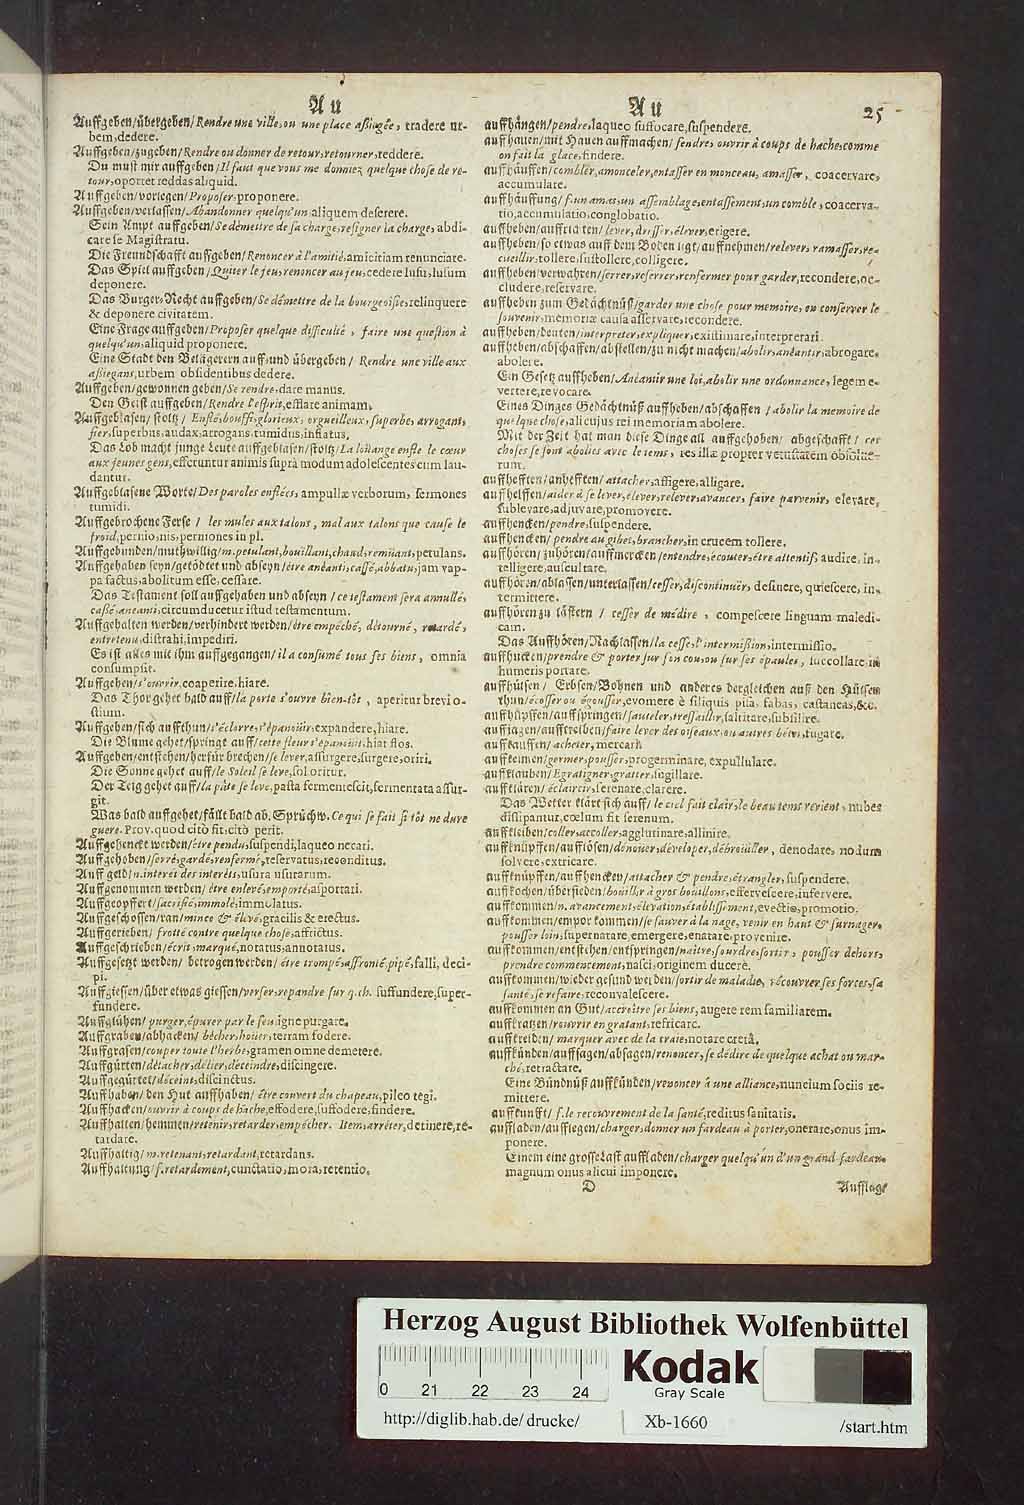 Au
Auffgeben/übergeben/Rendre une ville, ou une place assiegée, tradere ur-
bem, dedere.
Auffgeben/zugeben/Rendre ou donner de retour, retourner, reddere.
Du must mir auffgeben/Il faut que vous me donniez quelque chose de re-
tour, oportet reddas aliquid.
Auffgeben/vorlegen/Proposer, proponere.
Auffgeben/verlassen/Abandonner quelqu'un, aliquem deserere.
Sein Ampt auffgeben/Se démettre de sa charge, resigner la charge, abdi-
care se Magistratu.
Die Freundschafft auffgeben/Renoncer à l'amitié, amicitiam renunciare.
Das Spiel auffgeben/Quiter le jeu, renoncer au jeu, cedere lusu, lusum
deponere.
Das Burger-Recht auffgeben/Se démettre de la bourgeoisie, relinquere
& deponere civitatem.
Eine Frage auffgeben/Proposer quelque difficulté, faire une question à
quelqu'un, aliquid proponere.
Eine Stadt den Belägerern auff und übergeben/ Rendre une ville aux
assiegans, urbem obsidentibus dedere.
Auffgeben/gewonnen geben/Se rendre, dare manus.
Den Geist auffgeben/Rendre l'esprit, efflare animam.
Auffgeblasen/ stoltz/ Enflé, bouffi, glorieux, orgueilleux, superbe, arrogant,
fier, superbus, audax, arrogans, tumidus, inflatus.
Das Lob macht junge Leute auffgeblasen/stoltz/La loüange enfle le cœur
aux jeunes gens, efferuntur animis suprà modum adolescentes cum lau-
dantur.
Auffgeblasene Worte/Des paroles enflées, ampullæ verborum, sermones
tumidi.
Auffgebrochene Ferse/ les mules aux talons, mal aux talons que cause le
froid, pernio, nis, perniones in pl.
Auffgebunden/muthwillig/m. petulant, bouillant, chaud, remüant, petulans.
Auffgehaben seyn/getödtet und abseyn/être anéanti, cassé, abbatu, jam vap-
pa factus, abolitum esse, cessare.
Das Testament soll auffgehaben und abseyn/ce testament sera annullé,
cassé, aneanti, circumducetur istud testamentum.
Auffgehalten werden/verhindert werden/être empêché, détourné, retardé,
entretenu, distrahi, impediri.
Es ist alles mit ihm auffgegangen/il a consumé tous ses biens, omnia
consumpsit.
Auffgehen/s'ouvrir, coaperire, hiare.
Das Thor gehet bald auff/la porte s'ouvre bien-tôt, aperitur brevi o-
stium.
Auffgehen/sich auffthun/s'éclorre, s'épanoüir, expandere, hiare.
Die Blume gehet/springt auff/cette fleur s'épanoüit, hiat flos.
Auffgehen/entstehen/herfür brechen/se lever, assurgere, surgere, oriri.
Die Sonne gehet auff/le Soleil se leve, sol oritur.
Der Teig gehet auff/la pâte se leve, pasta fermentescit, fermentata assur-
git.
Was bald auffgehet/fällt bald ab. Sprüchw. Ce qui se fait si tôt ne dure
guere. Prov. quod citò fit, citò perit.
Auffgehenckt werden/être pendu, suspendi, laqueo necari.
Auffgehoben/serré, gardé, renfermé, reservatus, reconditus.
Auff geld/n. interêt des interêts, usura usurarum.
Auffgenommen werden/ être enlevé, emporté, asportari.
Auffgeopffert/sacrifié, immolé, immolatus.
Auffgeschossen/ran/mince & élevé, gracilis & erectus.
Auffgerieben/ frotté contre quelque chose, affrictus.
Auffgeschrieben/écrit, marqué, notatus, annotatus.
Auffgesetzt werden/ betrogen werden/ être trompé, affronté, pipé, falli, deci-
pi.
Auffgiessen/über etwas giessen/verser, repandre sur q. ch. suffundere, super-
fundere.
Auffglühen/ purger, épurer par le feu, igne purgare.
Auffgraben/abhacken/ bêcher, houër, terram fodere.
Auffgrasen/couper toute l'herbe, gramen omne demetere.
Auffgürten/détacher, délier, déceindre, discingere.
Auffgegürtet/déceint, discinctus.
Auffhaben/ den Hut auffhaben/ être couvert du chapeau, pileo tegi.
Auffhacken/ouvrir à coups de hache, effodere, suffodere, findere.
Auffhalten/hemmen/retenir, retarder, empêcher. Item, arrêter, detinere, re-
tardare.
Auffhaltig/m. retenant, retardant, retardans.
Auffhaltung/f. retardement, cunctatio, mora, retentio.
Au 25
auffhängen/pendre, laqueo suffocare, suspendere.
auffhauen/mit Hauen auffmachen/ fendre, ouvrir à coups de hache, comme
on fait la glace, findere.
auffhäuffen/combler, amonceler, entasser en monceau, amasser, coacervare,
accumulare.
auffhäuffung/ f. un amas, un assemblage, entassement, un comble, coacerva-
tio, accumulatio, conglobatio.
auffheben/auffrichten/lever, dresser, élever, erigere.
auffheben/so etwas auff dem Boden ligt/auffnehmen/relever, ramasser, re-
cueillir, tollere, sustollere, colligere.
auffheben/verwahren/serrer, reserrer, renfermer pour garder, recondere, oc-
cludere, reservare.
auffheben zum Gedächtnüß/garder une chose pour memoire, ou conserver le
souvenir, memoriæ causa asservare, recondere.
auffheben/deuten/interpreter, expliquer, existimare, interpretari.
auffheben/abschaffen/abstellen/zu nicht machen/abolir, anéantir, abrogare,
abolere.
Ein Gesetz auffheben/Anéantir une loi, abolir une ordonnance, legem e-
vertere, revocare.
Eines Dinges Gedächtnüß auffheben/abschaffen /abolir la memoire de
quelque chose, alicujus rei memoriam abolere.
Mit der Zeit hat man diese Dinge all auffgehoben/ abgeschafft/ ces
choses se sont abolies avec le tems, res illæ propter vetustatem obsolue-
rum.
auffhefften/anhefften/attacher, affigere, alligare.
auffhelffen/aider à se lever, élever, relever, avancer, faire parvenir, elevare,
sublevare, adjuvare, promovere.
auffhencken/pendre, suspendere.
auffhencken/ pendre au gibet, brancher, in crucem tollere.
auffhören/ zuhören/auffmercken/entendre, écouter, être attentif, audire, in-
telligere, auscultare.
auffhören/ablassen/unterlassen/cesser, discontinuër, desinere, quiescere, in-
termittere.
auffhören zu lästern / cesser de médire, compescere linguam maledi-
cam.
Das Auffhören/Nachlassen/la cesse, l'intermission, intermissio.
auffhucken/prendre & porter sur son cou, ou sur ses épaules, succollare, in
humeris portare.
auffhülsen/ Erbsen/Bohnen und anderes dergleichen auß den Hülsen
thun/écosser ou égousser, evomere è siliquis pisa, fabas, castaneas, &c.
auffhüpffen/auffspringen/sauteler, tressaillir, saltitare, subsilire.
auffjagen/aufftreiben/faire lever des oiseaux, ou autres bêtes, fugare.
auffkauffen/acheter, mercari.
auffkeimen/germer, pousser, progerminare, expullulare.
auffklauben/Egratigner, gratter, sugillare.
auffklären/éclaircir, serenare, clarere.
Das Wetter klärt sich auff/le ciel fait clair, le beau tems revient, nubes
dissipantur, cœlum fit serenum.
auffkleiben/coller, accoller, agglutinare, allinire.
auffknüpffen/aufflösen/dénouër, déveloper, débroüiller, denodare, nodum
solvere, extricare.
auffknüpffen/auffhencken/attacher & pendre, étrangler, suspendere.
auffkochen/übersieden/bouillir à gros bouillons, effervescere, infervere.
auffkommen/n. avancement, élevation, établissement, evectio, promotio.
auffkommen/empor kommen/se sauver à la nage, venir en haut & surnager,
pousser loin, supernatare, emergere, enatare, provenire.
auffkommen/entstehen/entspringen/naître, sourdre, sortir, pousser dehors,
prendre commencement, nasci, originem ducere.
auffkommen/wieder gesund werden/sortir de maladie, récouvrer ses forces, sa
santé, se refaire, reconvalescere.
auffkommen an Gut/accroître ses biens, augere rem familiarem.
auffkratzen/rouvrir en gratant, refricare.
auffkreiden/ marquer avec de la craie, notare cretâ.
auffkünden/auffsagen/absagen/renoncer, se dédire de quelque achat ou mar-
ché, retractare.
Eine Bündnüß auffkünden/renoncer à une alliance, nuncium sociis re-
mittere.
auffkunfft/ f. le recouvrement de la santé, reditus sanitatis.
auffladen/aufflegen/charger, donner un fardeau à porter, onerare, onus im-
ponere.
Einem eine grosse Last auffladen/charger quelqu'un d'un grand fardeau,
magnum onus alicui imponere.
D Aufflage
Herzog August Bibliothek Wolfenbüttel
0 21 22 23 24
Kodak
Gray Scale
http://diglib.hab.de/drucke/ Xb-1660 /start.htm